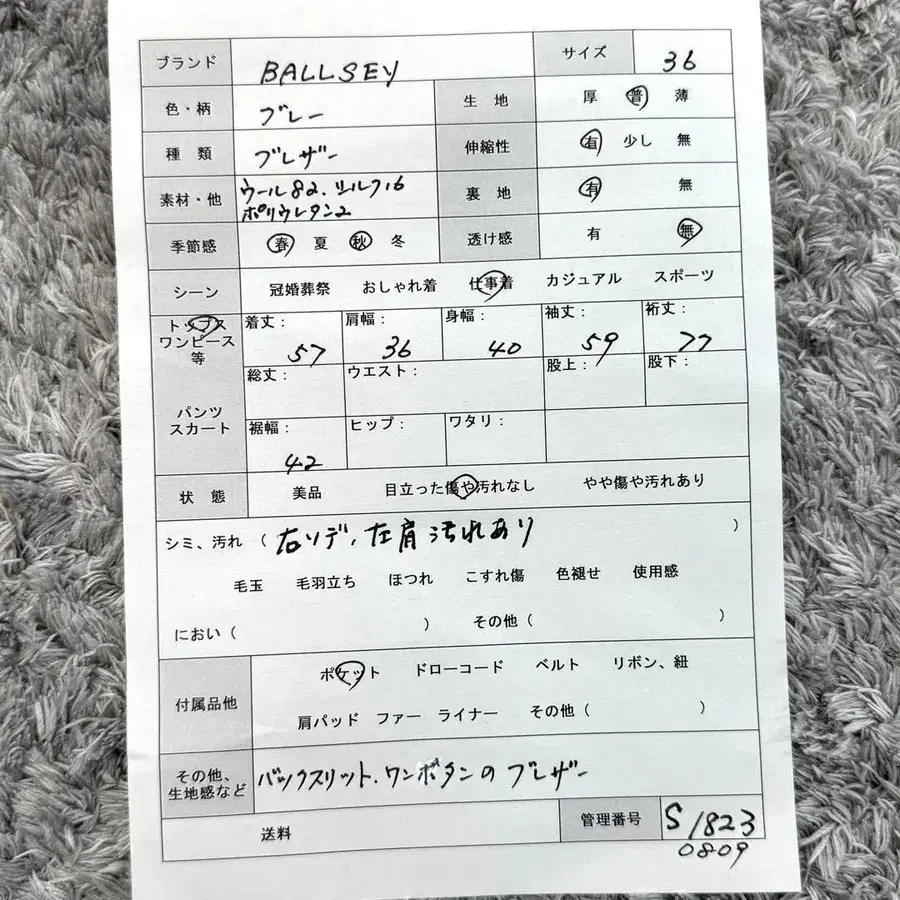 ブランド BALLSEY サイズ 36
色・柄 グレー 生 地 厚 普 薄
種 類 ブレザー 伸縮性 有 少し 無
素材・他 ウール82.シルク16 裏 地 有 無
ポリウレタン2
季節感 春 夏 秋 冬 透け感 有 無
シーン 冠婚葬祭 おしゃれ着 仕事着 カジュアル スポーツ
トップス 着丈: 肩幅: 身幅: 袖丈: 裄丈:
ワンピース 57 36 40 59 77
等 総丈: ウエスト: 股上: 股下:
パンツ
スカート 裾幅: ヒップ: ワタリ:
42
状 態 美品 目立った傷や汚れなし やや傷や汚れあり
シミ、汚れ ( 右ソデ、左肩汚れあり )
毛玉 毛羽立ち ほつれ こすれ傷 色褪せ 使用感
におい ( ) その他 ( )
付属品他 ポケット ドローコード ベルト リボン、紐
肩パッド ファー ライナー その他 ( )
その他、
生地感など バックスリット.ワンボタンのブレザー
送料 管理番号 S1823
0809